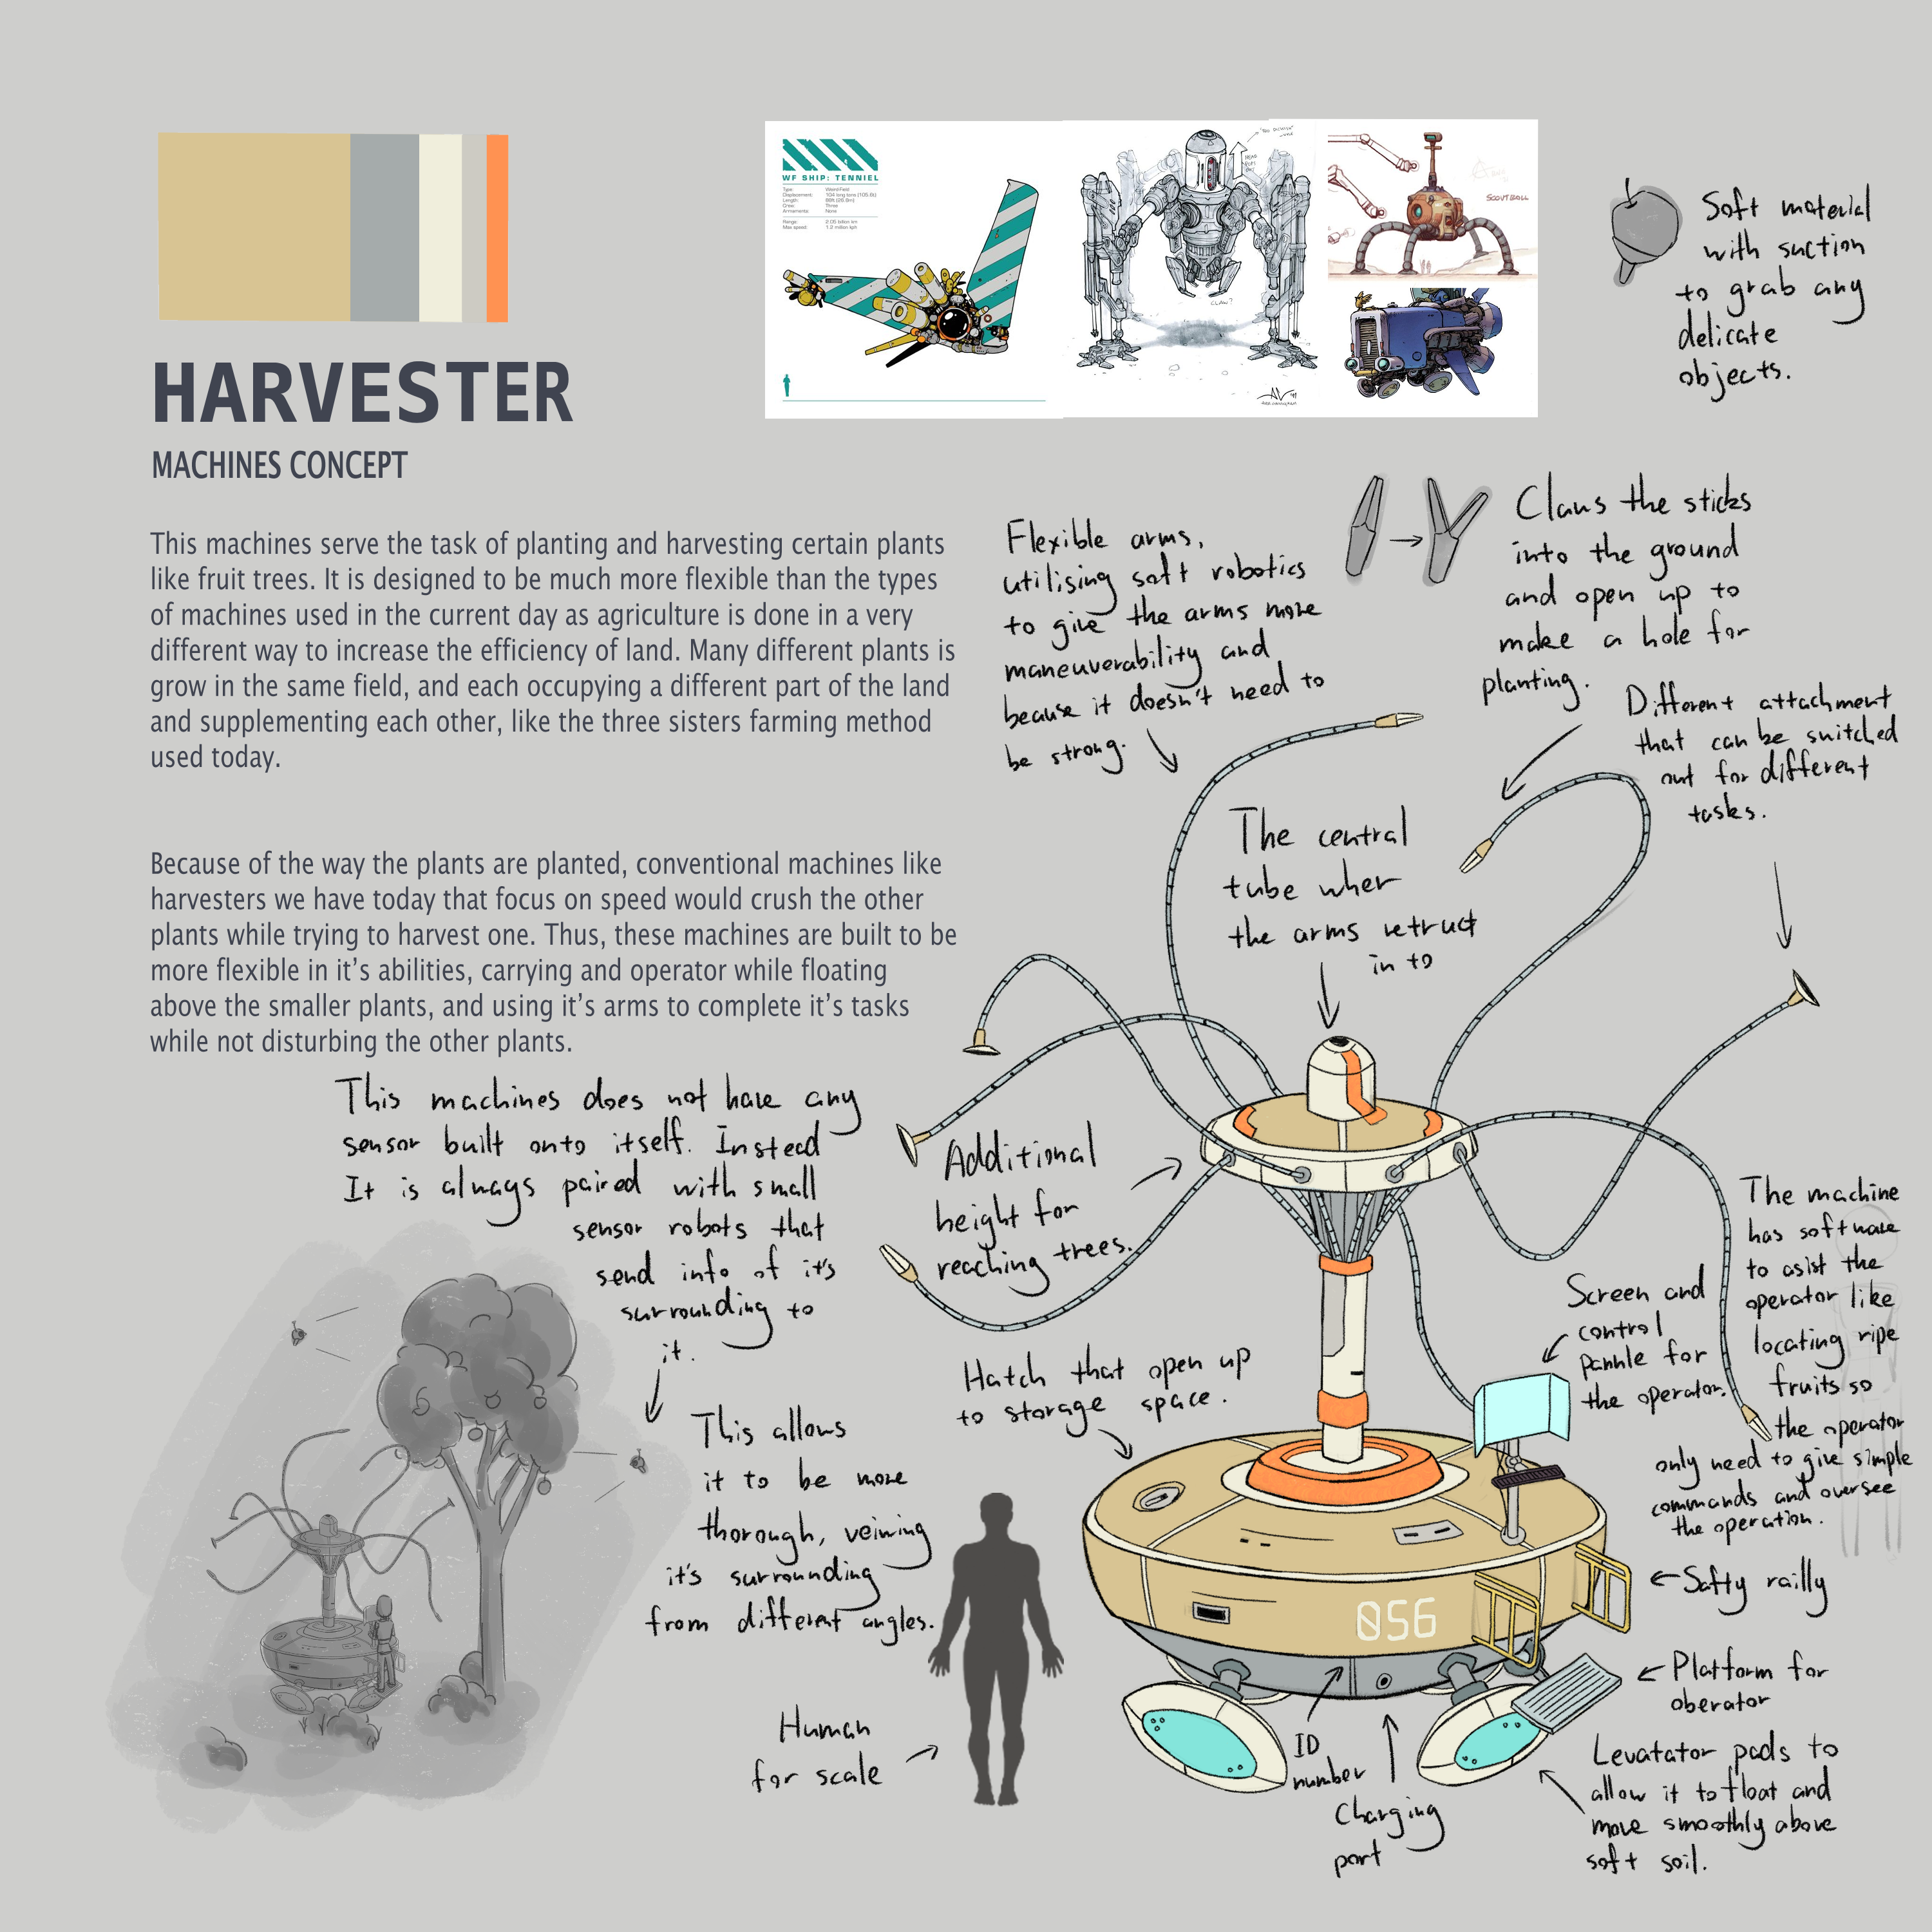 HARVESTER
MACHINES CONCEPT
This machines serve the task of planting and harvesting certain plants
like fruit trees. It is designed to be much more flexible than the types
of machines used in the current day as agriculture is done in a very
different way to increase the efficiency of land. Many different plants is
grow in the same field, and each occupying a different part of the land
and supplementing each other, like the three sisters farming method
used today.
Because of the way the plants are planted, conventional machines like
harvesters we have today that focus on speed would crush the other
plants while trying to harvest one. Thus, these machines are built to be
more flexible in it's abilities, carrying and operator while floating
above the smaller plants, and using it's arms to complete it's tasks
while not disturbing the other plants.
WF SHIP: TENNIEL
Type:
Displacement:
Length:
Crew: Three
Armaments: None
Range:
Max speed:
CLAW?
SCOUTBALL
Soft material
with suction
to grab any
delicate
objects.
Flexible arms,
utilising soft robotics
to give the arms more
maneuverability and
because it doesn't need to
be strong.
Claws the sticks
into the ground
and open up to
make a hole for
planting.
Different attachment
that can be switched
out for different
tasks.
The central
tube wher
the arms retruct
in to
This machines does not have any
sensor built onto itself. Instead
It is always paired with small
sensor robots that
send info of it's
surrounding to
it.
Additional
height for
reaching trees.
This allows
it to be more
thorough, veiwing
it's surrounding
from different angles.
Hatch that open up
to storage space.
Screen and
control
pannle for
the operator.
The machine
has software
to asist the
operator like
locating ripe
fruits so
the operator
only need to give simple
commands and oversee
the operation.
Safty railly
056
Platform for
oberator
Human
for scale
ID
number
Charging
port
Levatator pads to
allow it to float and
move smoothly above
soft soil.